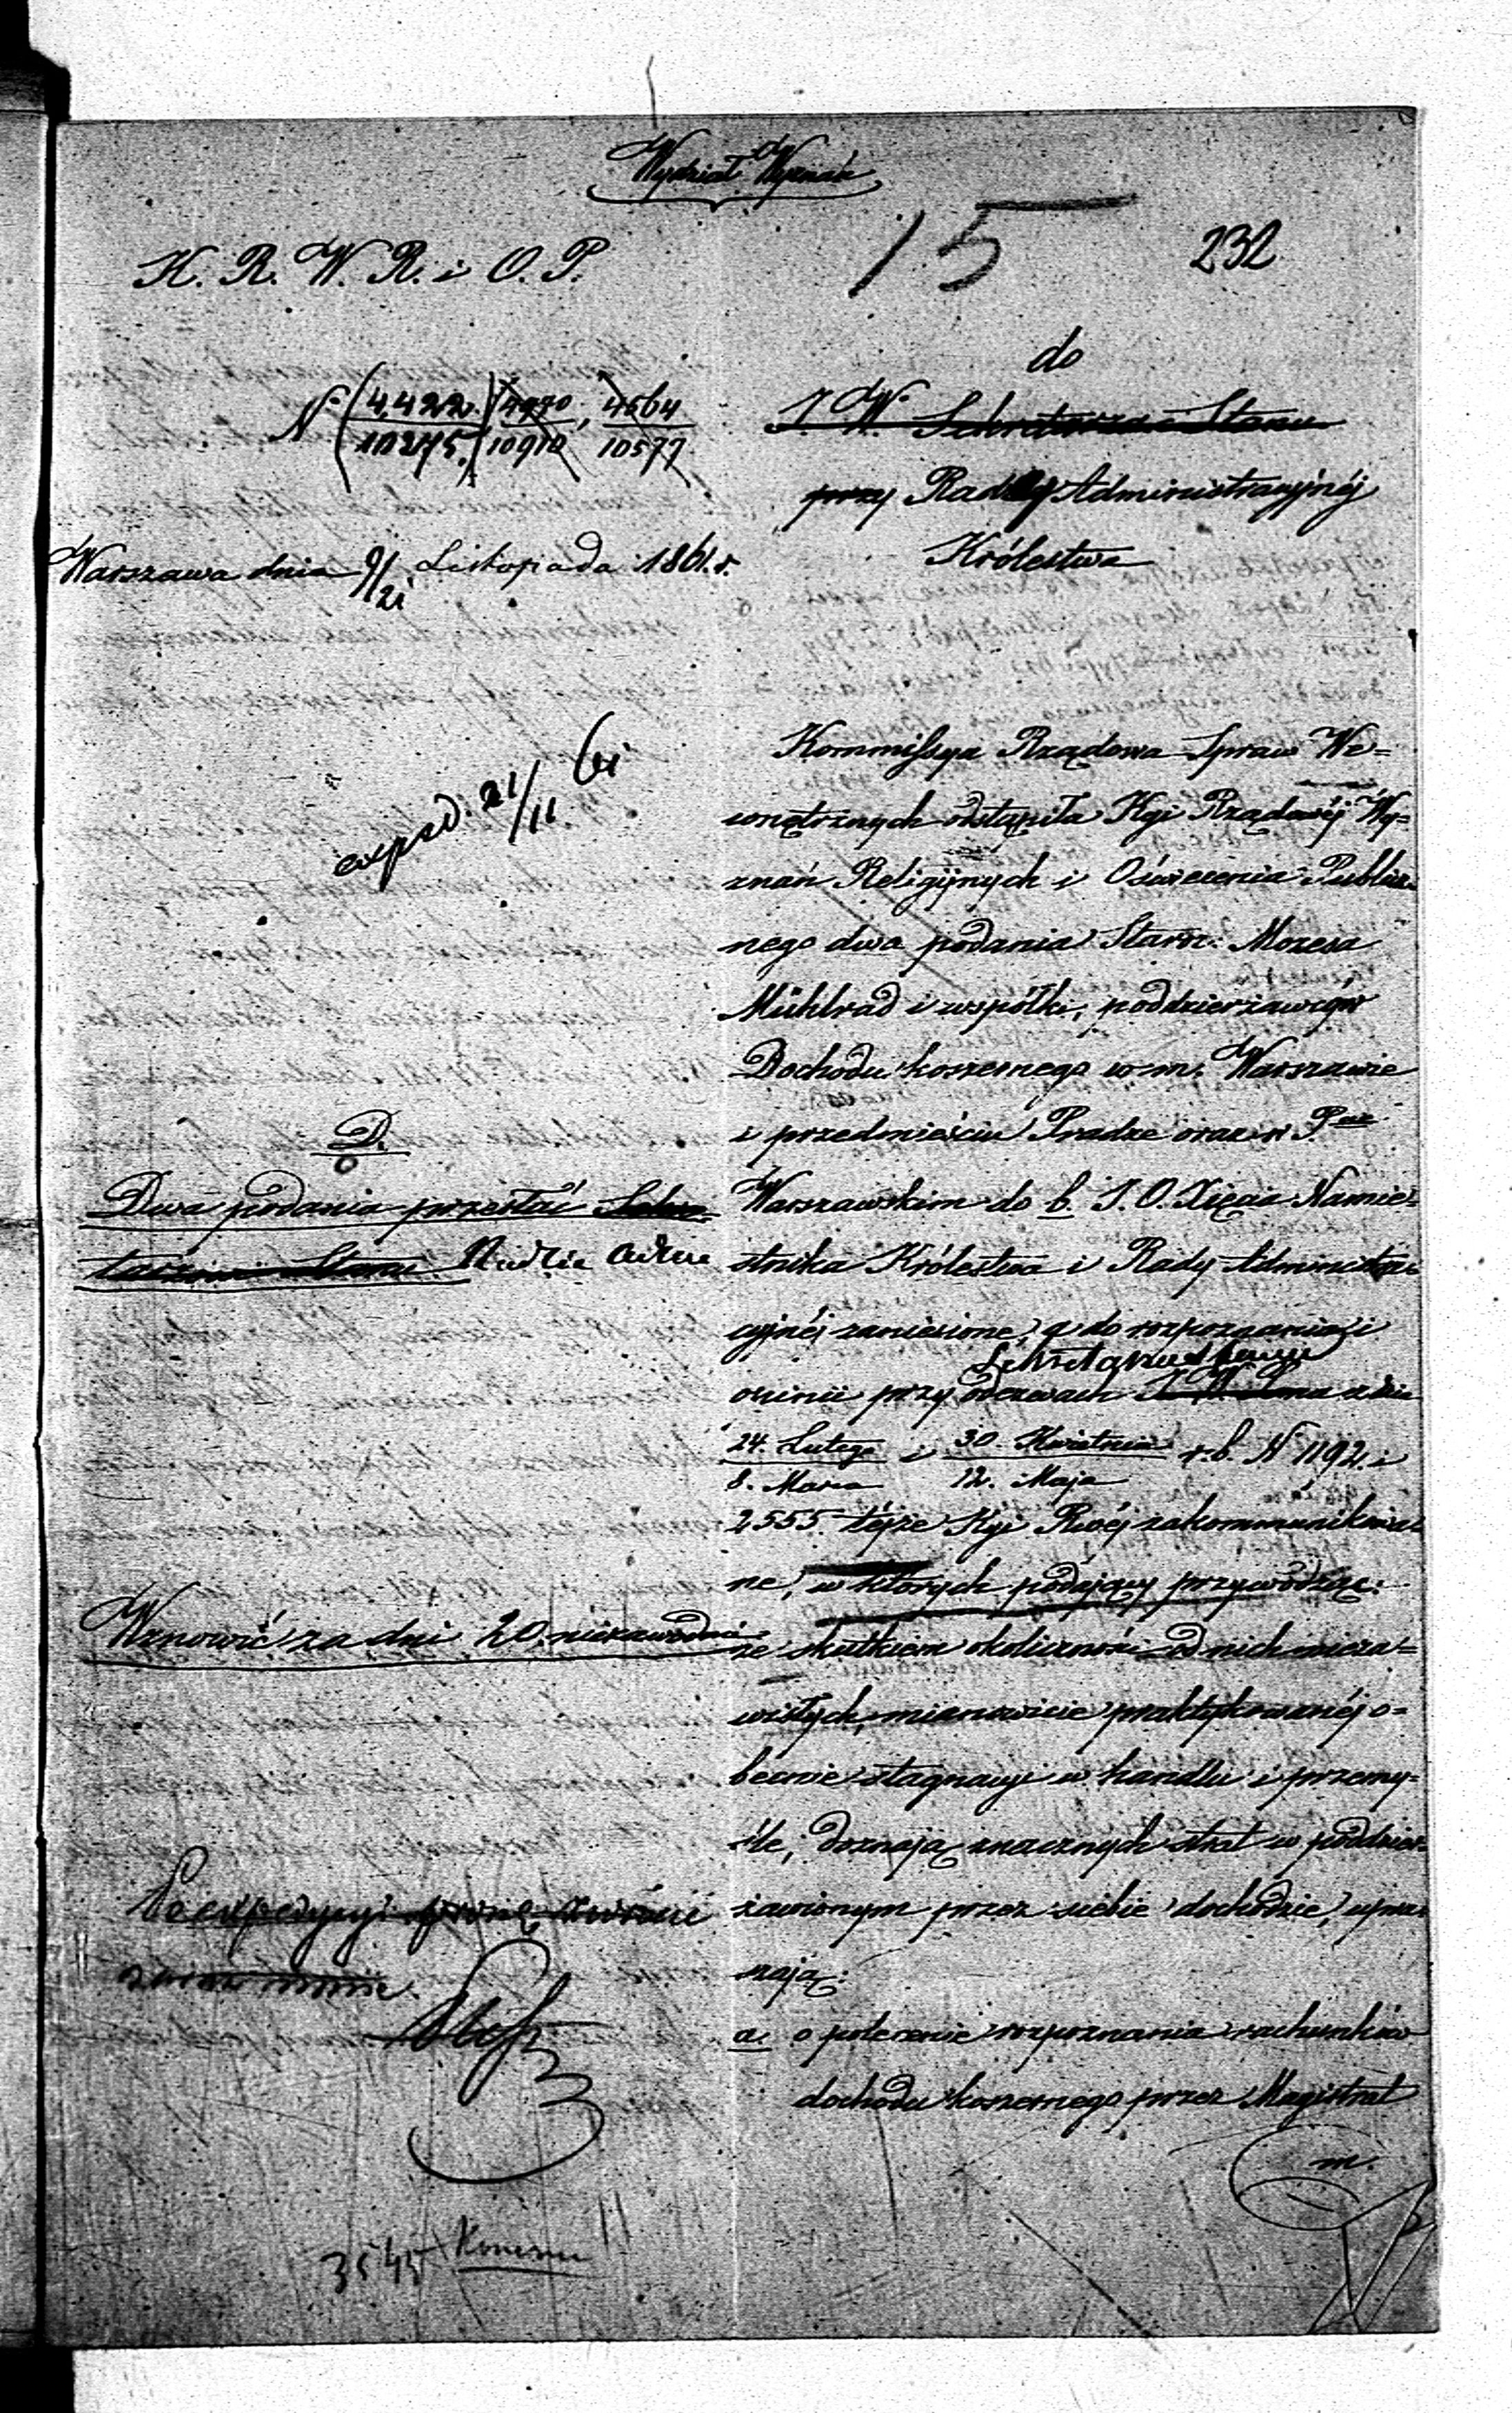 Wydział Wyznań
15
232
K. R. W. R. i O. P.
do
N (4,422/10275.) 4970/10910, 4564/10577
J. W. Sekretarza Stanu
przy Rady Administracyjnéj
Królestwa
Warszawa dnia 9/21 Listopada 1861. r.
exped. 21/11 61
Kommissya Rządowa Spraw We=
wnętrznych odstąpiła Kyi Rządowéj Wy=
znań Religijnych i Oświecenia Publicz
nego dwa podania Starz: Mozesa
Mühlrad i wspólki, poddzierżawców
Dochodu koszernego w m. Warszawie
i przedmieściu Pradze oraz w P.cie
Warszawskim do b. J. O. Xięcia Namie=
stnika Królestwa i Rady Administra=
cyjnéj zaniesione, a do rozpoznania i
Sekretarza Stanu
opinii przy odezwach z dnia
24. Lutego/8. Marca i 30. Kwietnia/12. Maja r. b. N 1192. i
2555. téjże Kyi Rwéj zakommunikowa=
ne, w których podający przywodząc:
że skutkiem okoliczności od nich nieza=
wisłych, mianowicie praktykowanéj o=
becnie stagnacyi w handlu i przemy=
śle, doznają znacznych strat w poddzier=
żawionym przez siebie dochodzie, upra=
szają:
a. o polecenie rozpoznania rachunków
dochodu koszernego przez Magistrat
m.
D.
Dwa podania przesłać Sekre=
tarzowi Stanu Radzie Adm
Wznowić za dni 20. niezawodnie
Po expedycyi proszę zwrócić
3545